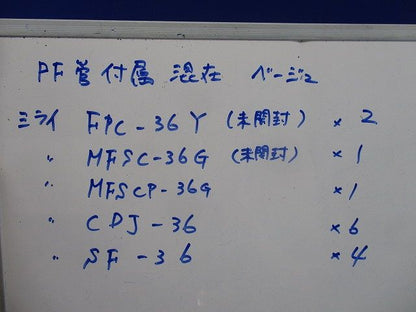 PF管付属 混在 ベージュ
ミライ FPC-36Y (未開封) × 2
〃 MFSC-36G (未開封) × 1
〃 MFSCP-36G × 1
〃 CDJ-36 × 6
〃 SF-36 × 4